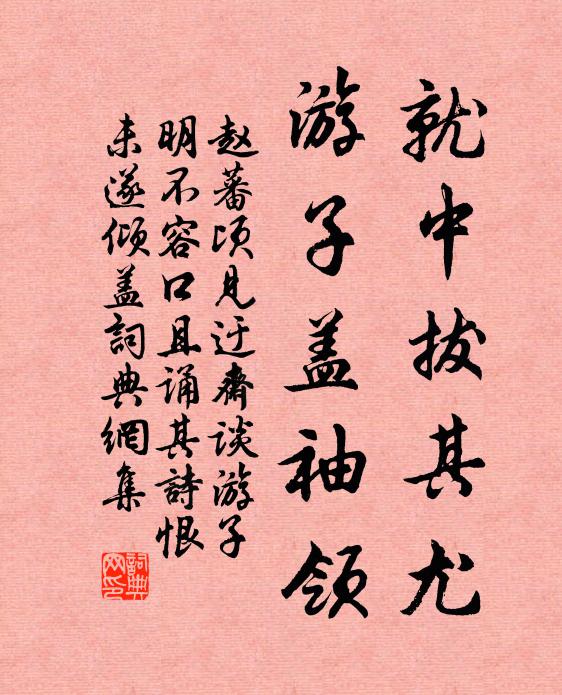 就中拔其尤
游子盖袖领
赵蕃顷见迂齋谈游子
明不容口且诵其詩恨
未遂倾盖詞典網集
詞典网印